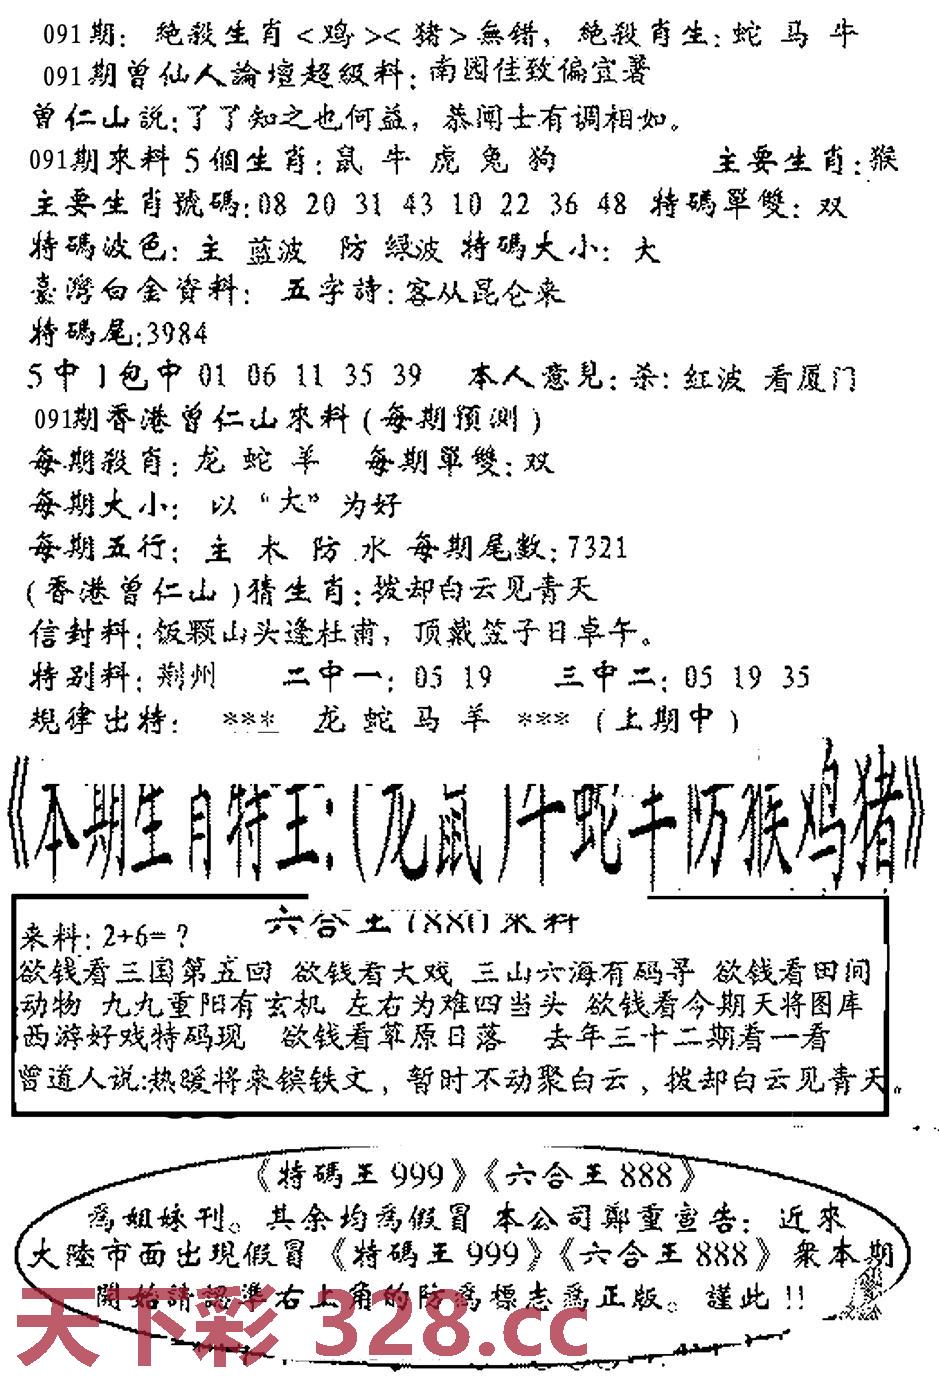 091期: 絶殺生肖<鸡><猪>無错, 絶殺肖生: 蛇 马 牛
091期曾仙人論壇超級料: 南园佳致偏宜暑
曾仁山説:了了知之也何益, 恭闻士有调相如。
091期來料 5個生肖: 鼠 牛 虎 兔 狗 主要生肖: 猴
主要生肖號碼:08 20 31 43 10 22 36 48 特碼單雙: 双
特碼波色: 主 蓝波 防 绿波 特碼大小: 大
臺灣白金資料: 五字詩: 客从昆仑来
特碼尾:3984
5中1包中 01 06 11 35 39 本人意見: 杀: 红波 看厦门
091期香港曾仁山來料(每期預测)
每期殺肖: 龙 蛇 羊 每期單雙: 双
每期大小: 以“大”为好
每期五行: 主 木 防 水 每期尾数: 7321
(香港曾仁山)猜生肖: 拨却白云见青天
信封料: 饭颗山头逢杜甫, 顶戴笠子日卓午。
特别料: 荆州 二中一: 05 19 三中二: 05 19 35
規律出特: *** 龙 蛇 马 羊 *** (上期中)
《本期生肖特王:(龙鼠)牛蛇牛防猴鸡猪》
六合王1880來料
来料: 2+6=?
欲钱看三国第五回 欲钱看大戏 三山六海有码寻 欲钱看田间
动物 九九重阳有玄机 左右为难四当头 欲钱看今期天将图库
西游好戏特码现 欲钱看草原日落 去年三十二期看一看
曾道人说:热暖将来镔铁文, 暂时不动聚白云, 拨却白云见青天。
《特碼王999》《六合王888》
爲姐妹刊。其余均爲假冒 本公司鄭重宣告: 近來
大陸市面出現假冒《特碼王999》《六合王888》衆本期
開始請認準右上角的防爲標志爲正版。謹此!!
天下彩 328.cc